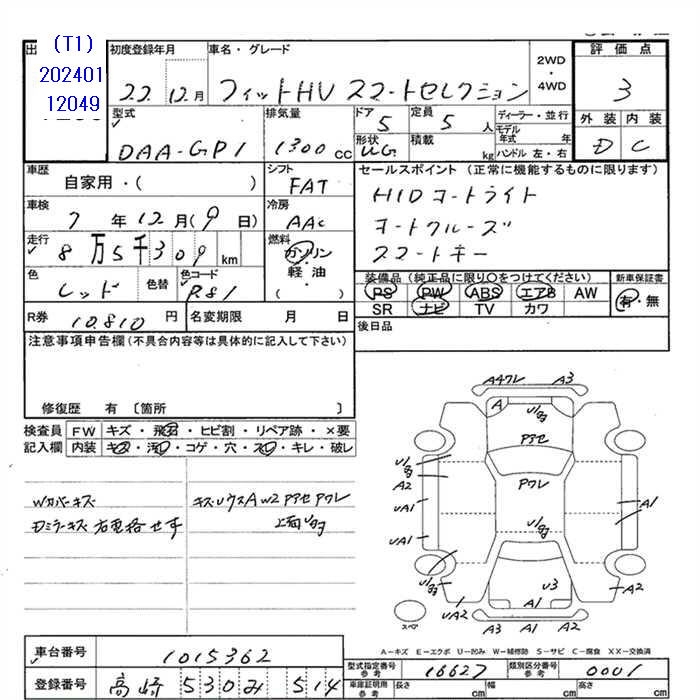 (T1)
202401
12049
出
初度登録年月
22.12月
車名・グレード
フィットHV スマートセレクション
2WD
・
4WD
評価点
3
外装 内装
D C
型式
DAA-GP1
排気量
1300 cc
ドア
5
形状
UG
定員
5 人
積載
kg
ディーラー・並行
モデル年式 年
ハンドル 左・右
車歴
自家用・( )
シフト
FAT
セールスポイント (正常に機能するものに限ります)
HIDヨートライト
ヨートクルーズ
スマートキー
車検
7年12月(9日)
冷房
AAC
走行
8万5千309 km
燃料
ガソリン
・
軽油
( )
色
レッド
色替
色コード
R81
装備品 (純正品に限り○をつけてください)
PS PW ABS エアB AW
SR ナビ TV カワ
新車保証書
有・無
R券 10.810 円
名変期限 月 日
後日品
注意事項申告欄 (不具合内容等は具体的に記入して下さい)
修復歴 有 〔箇所 〕
検査員 FW キズ・飛石・ヒビ割・リペア跡・×要
記入欄 内装 キズ・汚レ・コゲ・穴・スレ・キレ・破レ
Wカバーキズ
Dミラーキズ 右電格せず
キズUウスA W2 PアセPワレ
上面Uタタ
A4ワレ A3
A
Pアセ
Pワレ
A2
UA1
UA1
A1
U3
UA2
A1
A2
A3 A2
スペア
A-キズ E-エクボ U-凹み W-補修跡 S-サビ C-腐食 XX-交換済
車台番号
1015362
登録番号
高崎 530 み 514
型式指定番号
参考
16627
類別区分番号
参考
0001
車庫証明用
参考
長さ cm
幅 cm
高さ cm